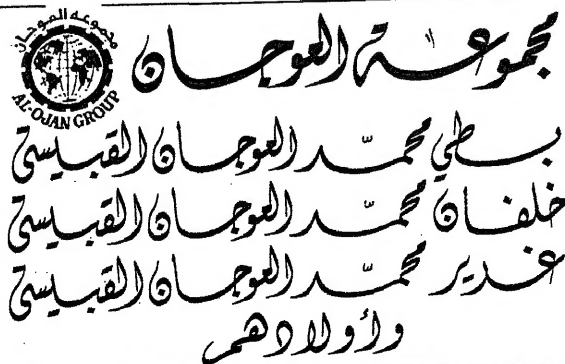 مجموعة العوجان
مجموعة العوجان
AL-OJAN GROUP
بطي محمد العوجان القبيسي
خلفان محمد العوجان القبيسي
غدير محمد العوجان القبيسي
وأولادهم